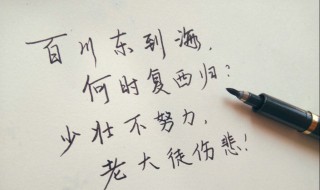 百川东到海，
何时复西归？
少壮不努力，
老大徒伤悲！